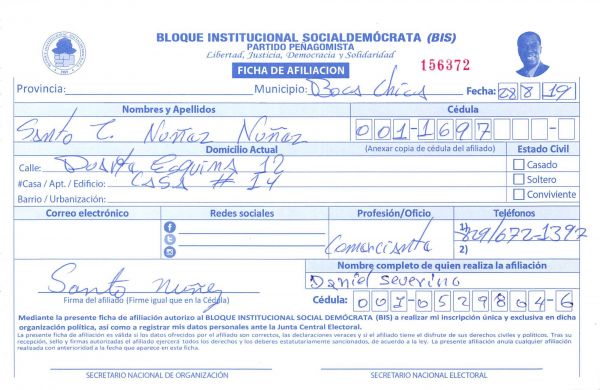 BLOQUE INSTITUCIONAL SOCIALDEMÓCRATA (BIS)
PARTIDO PEÑAGOMISTA
Libertad, Justicia, Democracia y Solidaridad
FICHA DE AFILIACION
156372
Provincia: Municipio: Boca Chica Fecha: 28 8 19
Nombres y Apellidos Cédula
Santo C. Nuñez Nuñez 001-1697
Domicilio Actual (Anexar copia de cédula del afiliado) Estado Civil
Calle: Esquina 12 Casado
#Casa / Apt. / Edificio: CASA # 14 Soltero
Barrio / Urbanización: Conviviente
Correo electrónico Redes sociales Profesión/Oficio Teléfonos
1) 829/672-1397
Comercianta 2)
Nombre completo de quien realiza la afiliación
Santo Nuñez Daniel Severino
Firma del afiliado (Firme igual que en la Cédula) Cédula: 001-0529864-6
Mediante la presente ficha de afiliación autorizo al BLOQUE INSTITUCIONAL SOCIAL DEMÓCRATA (BIS) a realizar mi inscripción única y exclusiva en dicha
organización política, así como a registrar mis datos personales ante la Junta Central Electoral.
La presente ficha de afiliación es válida si los datos ofrecidos por el afiliado son correctos, las declaraciones veraces y si el afiliado tiene el disfrute de sus derechos civiles y políticos. Tras su
recepción, sello y firmas autorizadas el afiliado ejercerá todos los derechos y los deberes estatutariamente sancionados, de acuerdo a la ley. La presente afiliación anula cualquier afiliación
realizada con anterioridad a la fecha que aparece en esta ficha.
SECRETARIO NACIONAL DE ORGANIZACIÓN SECRETARIO NACIONAL ELECTORAL